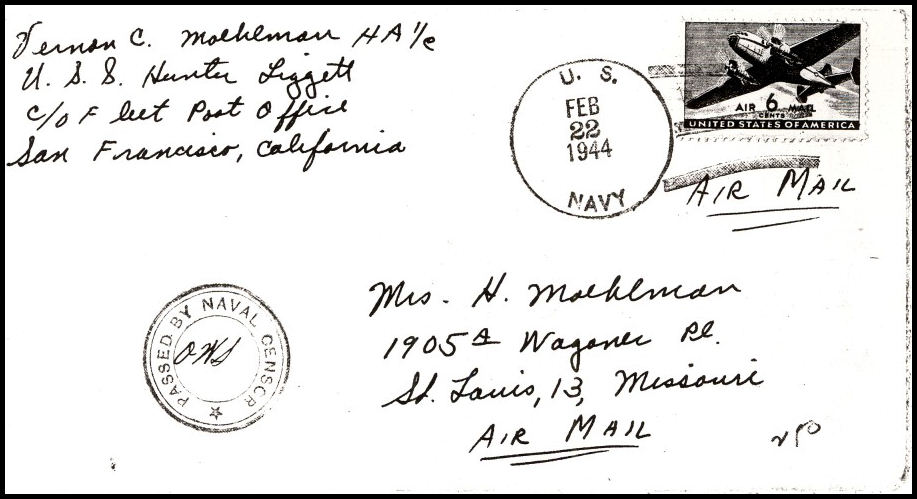 Vernon C. Moehlman HA 1/c
U. S. S. Hunter Liggett
c/o Fleet Post Office
San Francisco, California
U. S.
FEB
22
1944
NAVY
AIR 6 MAIL
CENTS
UNITED STATES OF AMERICA
AIR MAIL
PASSED BY NAVAL CENSOR
OWS
Mrs. H. Moehlman
1905A Wagoner Pl.
St. Louis, 13, Missouri
AIR MAIL